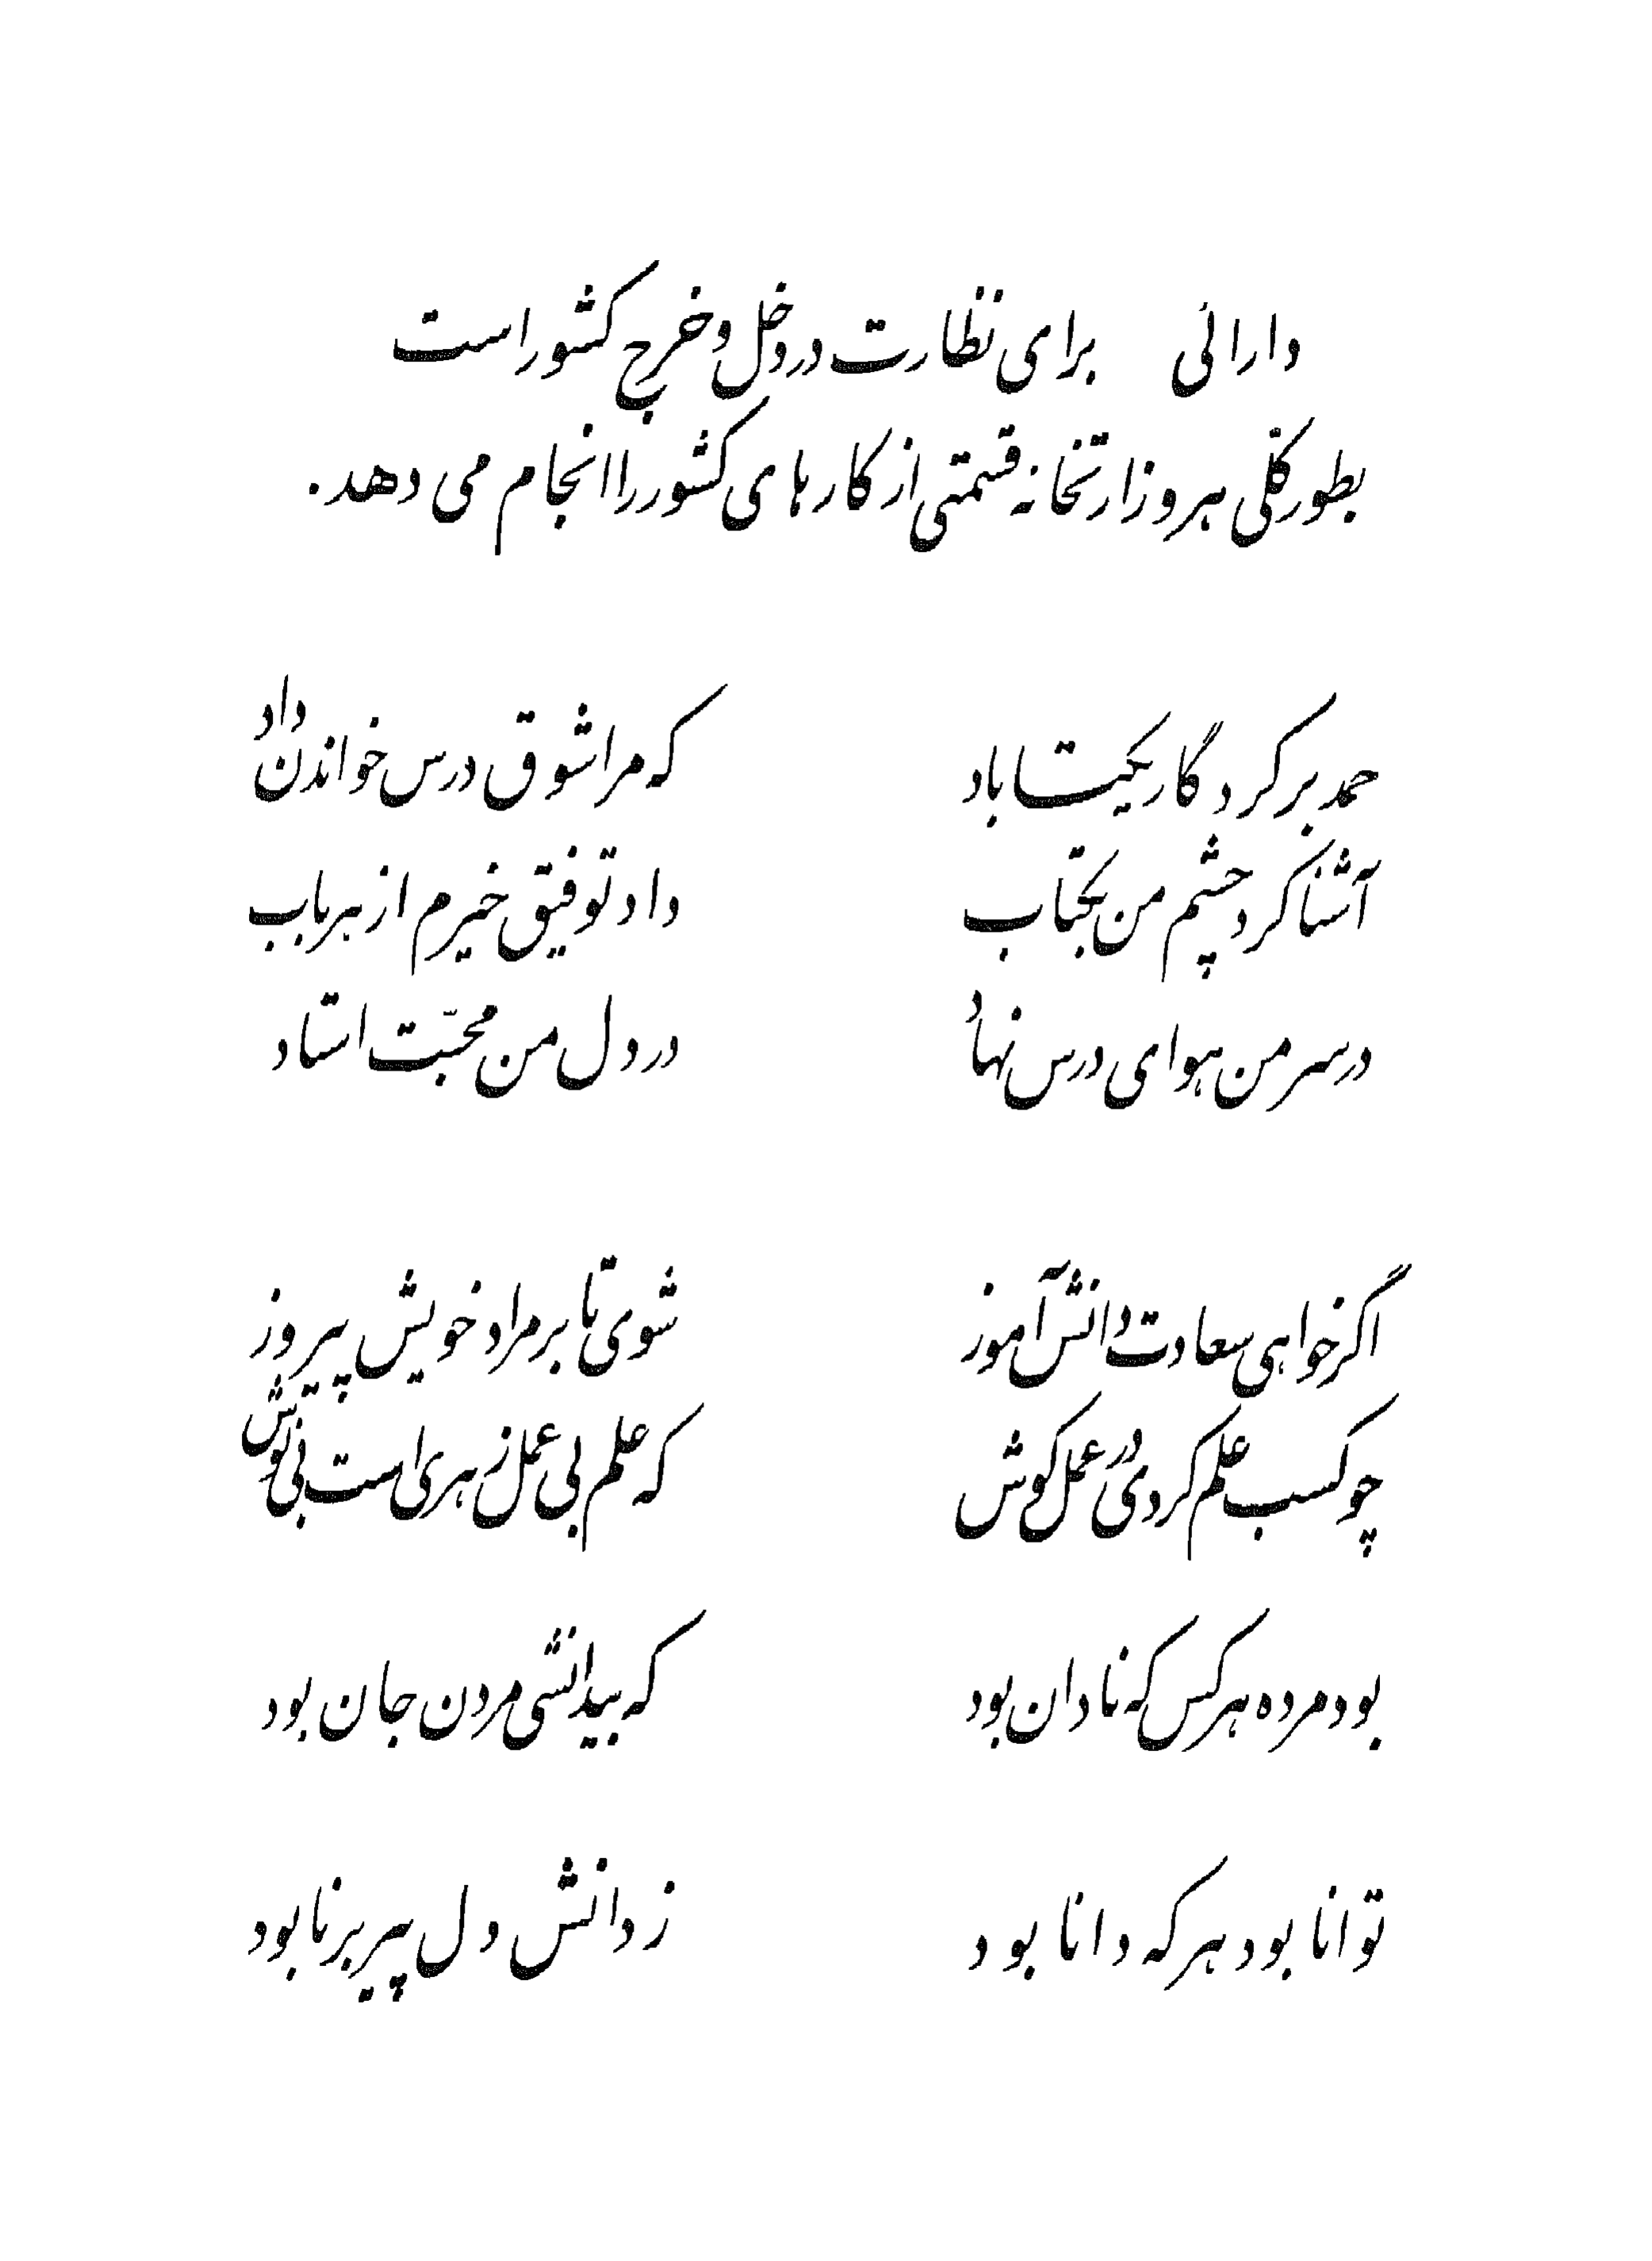 دارائی برای نظارت در دخل و خرج کشور است
بطور کلی هر وزارتخانه قسمتی از کارهای کشور را انجام می دهد.
حمد بر کردگار یکتا باد که مرا شوق درس خواندن داد
آشنا کرد چشم من بکتاب داد توفیق خیرم از هر باب
در سر من هوای درس نهاد در دل من محبّت استاد
اگر خواهی سعادت دانش آموز شوی تا بر مراد خویش پیروز
چو کسب علم کردی در عمل کوش که علم بی عمل زهری است بی نوش
بود مرده هر کس که نادان بود که بیدانشی مردن جان بود
توانا بود هر که دانا بود ز دانش دل پیر برنا بود